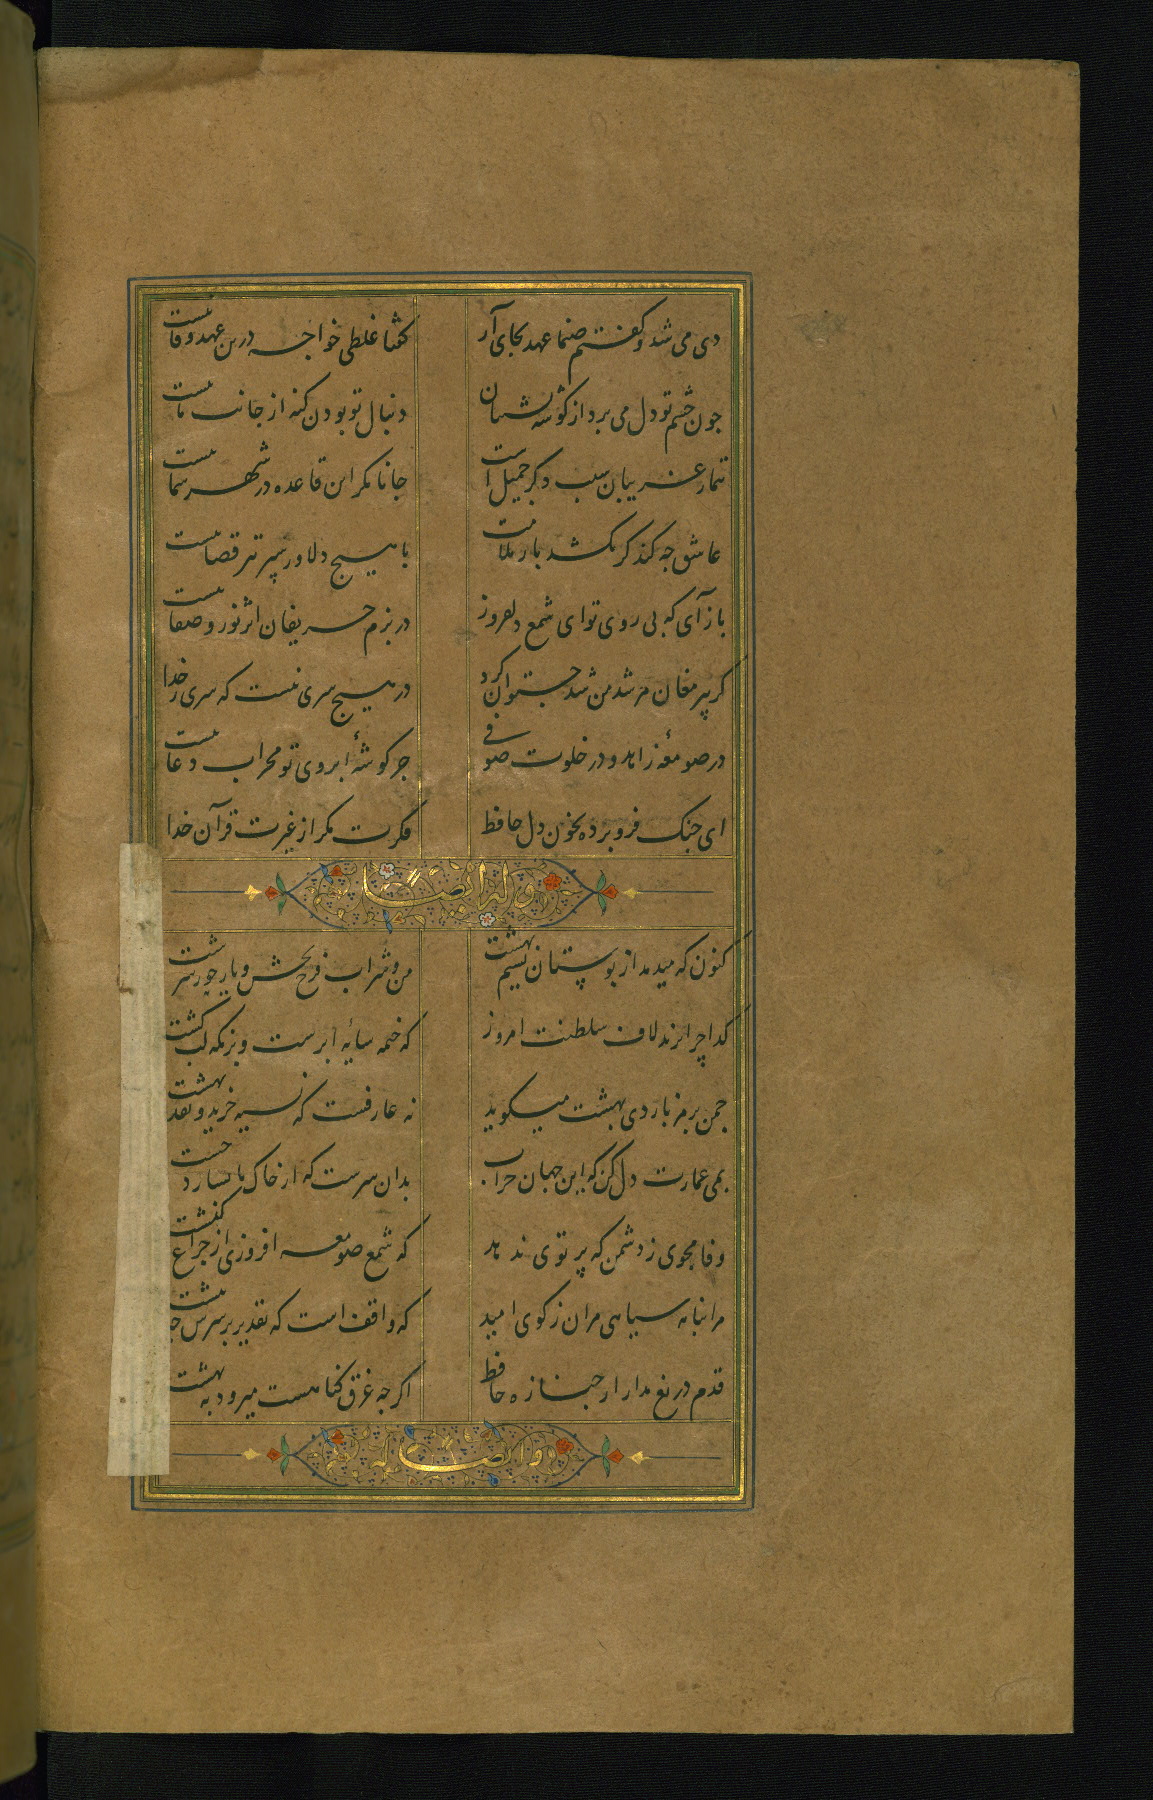 دی می شد و کفتم صنما عهد بجای آر کفتا غلطی خواجه درین عهد وفا نیست
جون چشم تو دل می برد از کوشه نشینان دنبال تو بودن کنه از جانب ما نیست
تیمار غریبان سبب ذکر جمیل است جانا مکر این قاعده در شهر شما نیست
عاشق جه کند کر نکشد بار ملامت با هیج دلاور سپر تیر قضا نیست
باز آی که بی روی تو ای شمع دلفروز در بزم حریفان اثر نور و صفا نیست
کر پیر مغان مرشد من شد جتوان کرد در هیج سری نیست که سری ز خدا
در صومعهٔ زاهد و در خلوت صوفی جز کوشهٔ ابروی تو محراب دعا نیست
ای جنک فرو برده بخون دل حافظ فکرت مکر از غیرت قرآن خدا
وله ایضا
کنون که میدمد از بوستان نسیم بهشت من و شراب فرح بخش و یار حور سرشت
کدا چرا نزند لاف سلطنت امروز که خیمه سایهٔ ابرست و بزمکه لب کشت
جمن برمز ز اردی بهشت میکوید نه عارفست که نسیه خرید و نقد بهشت
بمی عمارت دل کن که این جهان خراب بدان سرست که از خاک ما بسازد خشت
وفا مجوی ز دشمن که پرتوی ندهد که شمع صومعه افروزی از جراغ کنشت
مرا بنامه سیاهی مران ز کوی امید که واقف است که تقدیر بر سرش
قدم دریغ مدار از جنازه حافظ اکر جه غرق کناهست میرود به بهشت
و ایضا له